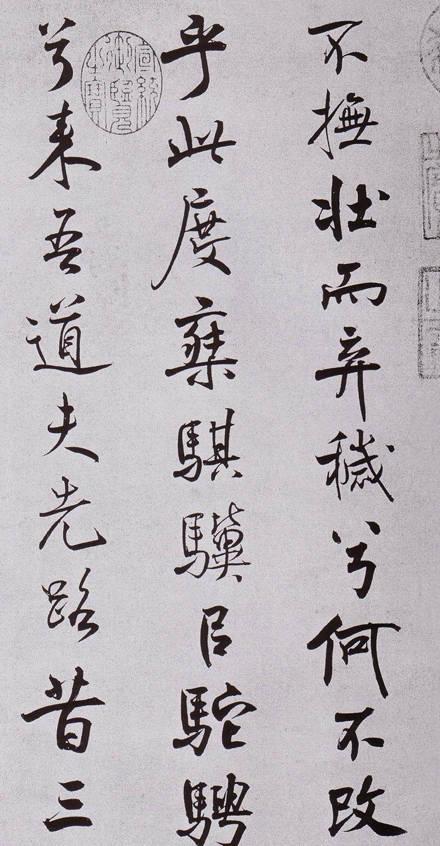 不撫壯而弃穢兮何不改
乎此度椉騏驥㠯駝騁
兮来吾道夫先路昔三
宣統御覽之寶